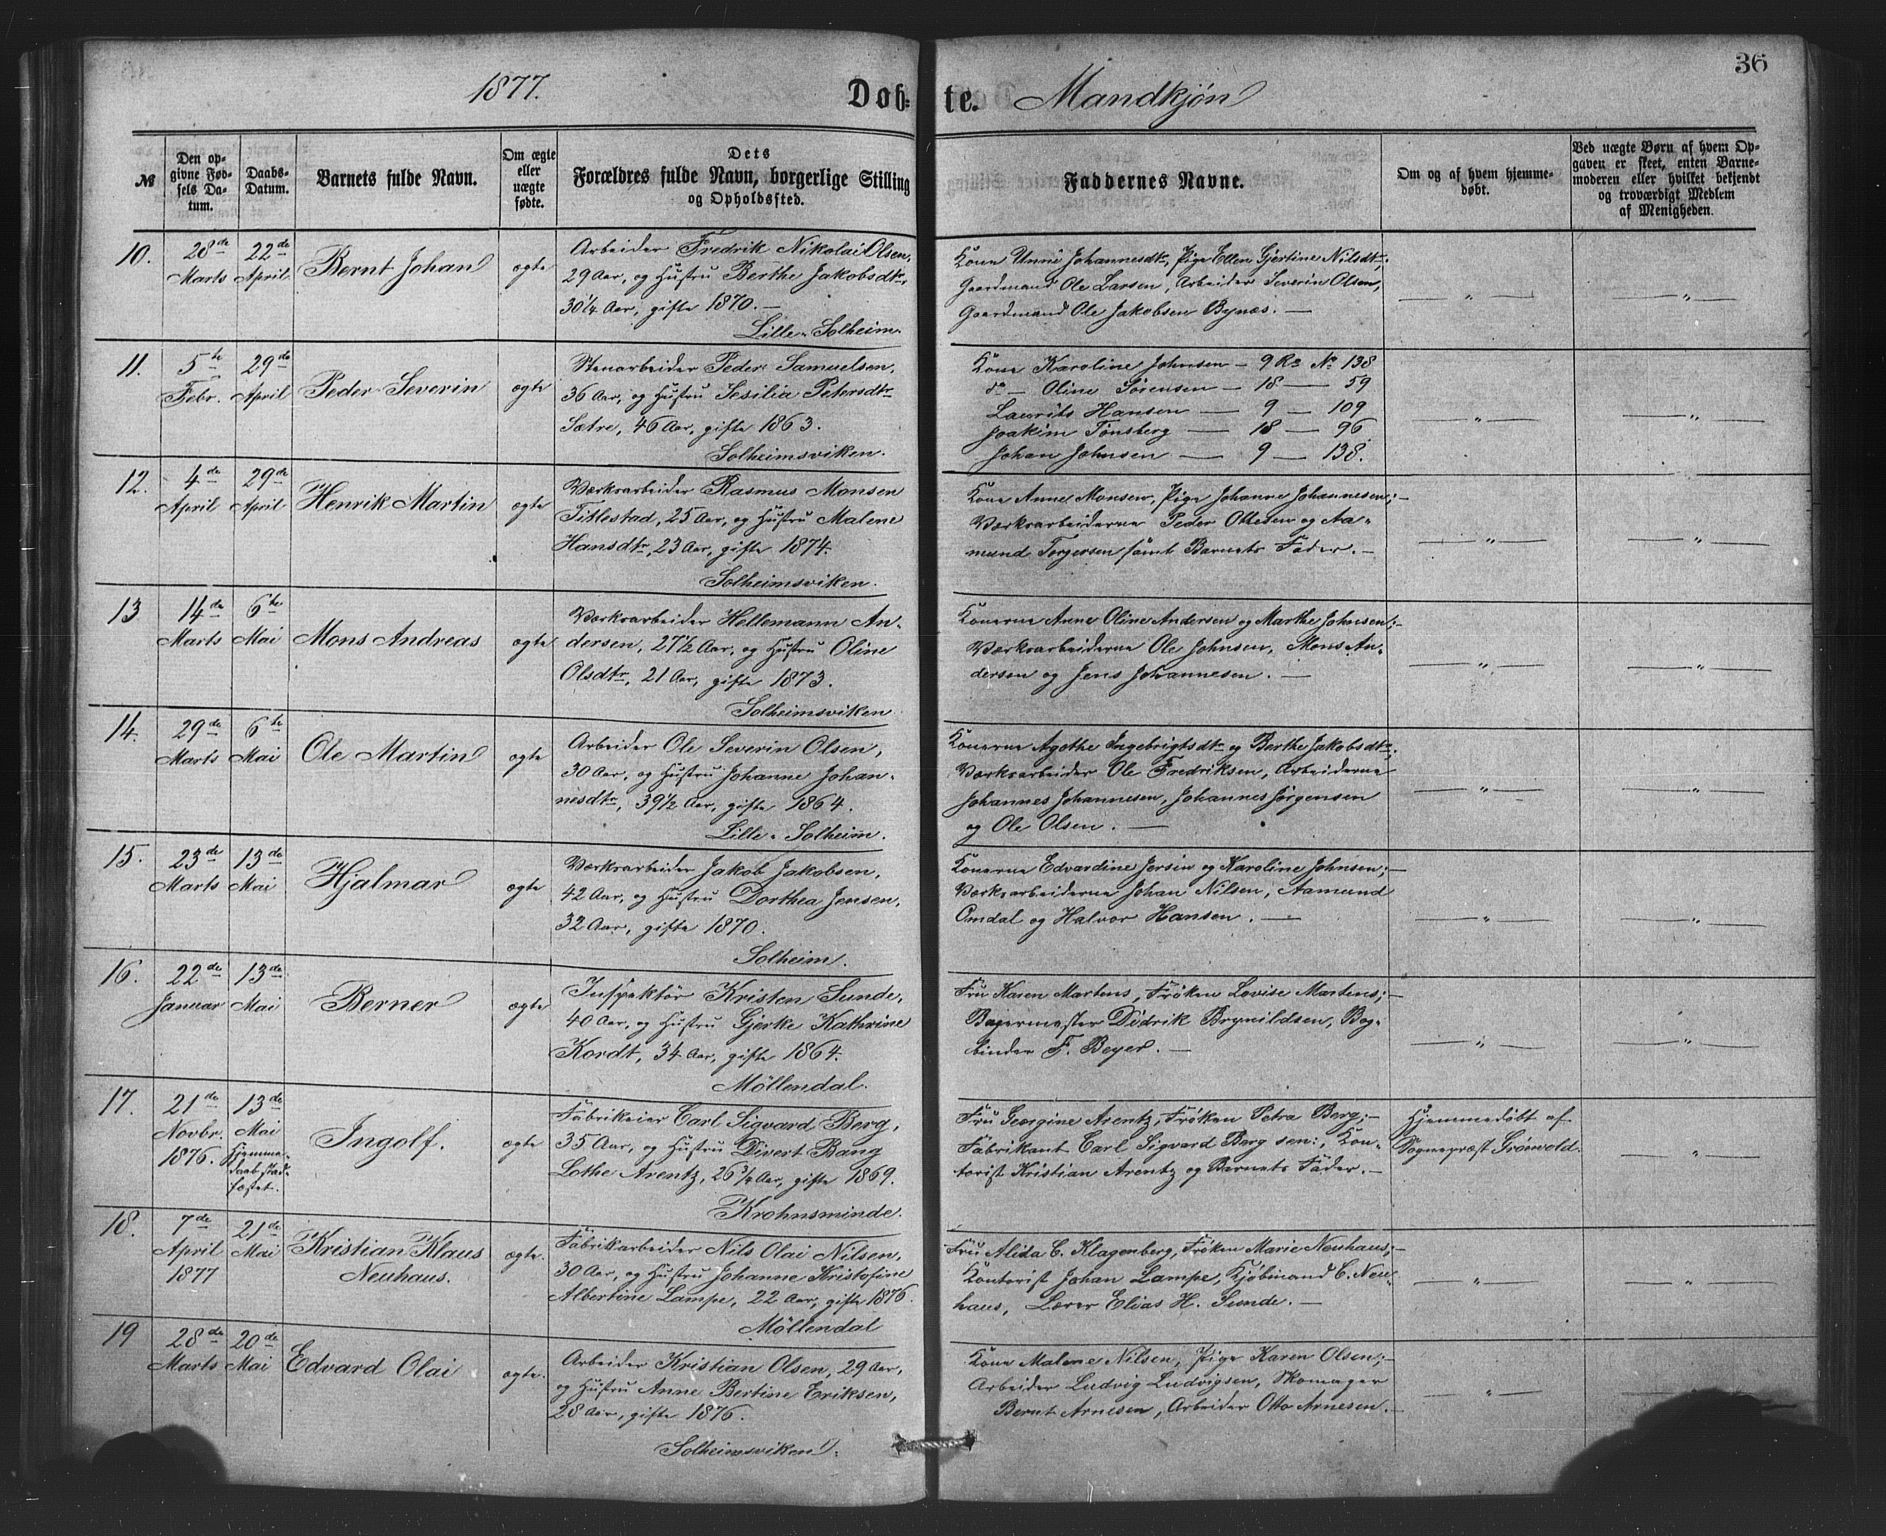 36
1877.
Døbte. Mandkjøn
№
Den opgivne Fødsels Datum.
Daabs-Datum.
Barnets fulde Navn.
Om ægte eller uægte fødte.
Dets Forældres fulde Navn, borgerlige Stilling og Opholdssted.
Faddernes Navne.
Om og af hvem hjemmedøbt.
Ved uægte Børn af hvem Opgaven er skeet, enten Barnemoderen eller hvilket bekjendt og troværdigt Medlem af Menigheden.
10. 28de Marts 22de April Bernt Johan ægte
Arbeider Fredrik Nikolai Olsen,
29 Aar, og Hustru Berthe Jakobsdtr,
30 1/4 Aar, gifte 1870. —
Lille-Solheim.
Kone Unni Johannesdtr, Pige Ellen Gjertine Nilsdtr;
Gaardmand Ole Larsen, Arbeider Severin Olsen,
Gaardmand Ole Jakobsen Bynæs. —
— " — — " —
11. 5te Febr. 29de April Peder Severin ægte
Stenarbeider Peder Samuelsen,
36 Aar, og Hustru Sesilia Petersdtr
Sætre, 46 Aar, gifte 1863.
Solheimsviken.
Kone Karoline Johnsen — 9 R. No 138
do — Oline Sørensen — 18 — 59
Laurits Hansen — 9 — 109
Joakim Tønsberg — 18 — 96
Johan Johnsen — 9 — 138.
— " — — " —
12. 4de April 29de April Henrik Martin ægte
Værksarbeider Rasmus Monsen
Titlestad, 25 Aar, og Hustru Malene
Hansdtr, 23 Aar, gifte 1874.
Solheimsviken.
Kone Anne Monsen, Pige Johanne Johannesen; —
Værksarbeiderne Peder Ottesen og Aa-
mund Torgersen samt Barnets Fader. —
— " — — " —
13 14de Marts 6te Mai Mons Andreas ægte
Værksarbeider Hellemann An-
dersen, 27 1/2 Aar, og Hustru Oline
Olsdtr, 21 Aar, gifte 1873.
Solheimsviken.
Konerne Anne Oline Andersen og Marthe Johnsen; —
Værksarbeiderne Ole Johnsen, Mons An-
dersen og Jens Johannesen. —
— " — — " —
14. 29de Marts 6te Mai Ole Martin ægte
Arbeider Ole Severin Olsen,
30 Aar, og Hustru Johanne Johan-
nesdtr, 39 1/2 Aar, gifte 1864.
Lille-Solheim.
Konerne Agethe Ingebrigtsdtr og Berthe Jakobsdtr;
Værksarbeider Ole Fredriksen, Arbeiderne
Johannes Johannesen, Johannes Jørgensen
og Ole Olsen. —
— " — — " —
15. 23de Marts 13de Mai Hjalmar ægte
Værksarbeider Jakob Jakobsen,
42 Aar, og Hustru Dorthea Jensen,
32 Aar, gifte 1870.
Solheim.
Konerne Edvardine Jersin og Karoline Johnsen; —
Værksarbeiderne Johan Nilsen, Aamund
Omdal og Halvor Hansen. —
— " — — " —
16. 22de Januar 13de Mai Berner ægte
Inspektør Kristen Sunde,
40 Aar, og Hustru Gjerke Kathrine
Kordt, 34 Aar, gifte 1864.
Möllendal.
Fru Karen Martens, Frøken Lovise Martens; —
Bagermester Didrik Brynildsen, Bog-
binder F. Beyer. —
— " — — " —
17. 21de Novbr. 1876. 13de Mai Hjemme-daab stad-fæstet. Ingolf. ægte
Fabrikeier Carl Sigvard Berg,
35 Aar, og Hustru Divert Bang
Lothe Arentz, 26 3/4 Aar, gifte 1869.
Krohnsminde.
Fru Georgine Arentz, Frøken Petra Berg; —
Fabrikant Carl Sigvard Berg sen:, Kon-
torist Kristian Arentz og Barnets Fader. —
Hjemmedøbt af
Sognepræst Grönvold.
— " —
18. 7de April 1877 21de Mai Kristian Klaus Neuhaus. ægte.
Fabrikarbeider Nils Olai Nilsen,
30 Aar, og Hustru Johanne Kristofine
Albertine Lampe, 22 Aar, gifte 1876.
Möllendal
Fru Alida C. Klagenberg, Frøken Marie Neuhaus; —
Kontorist Johan Lampe, Kjøbmand C. Neu-
haus, Lærer Elias H. Sunde. —
— " — — " —
19 28de Marts 20de Mai Edvard Olai ægte.
Arbeider Kristian Olsen, 29 Aar,
og Hustru Anne Bertine Eriksen,
28 Aar, gifte 1876.
Solheimsviken.
Kone Malene Nilsen, Pige Karen Olsen; —
Arbeider Ludvig Ludvigsen, Skomager
Bernt Arnesen, Arbeider Otto Arnesen. —
— " — — " —